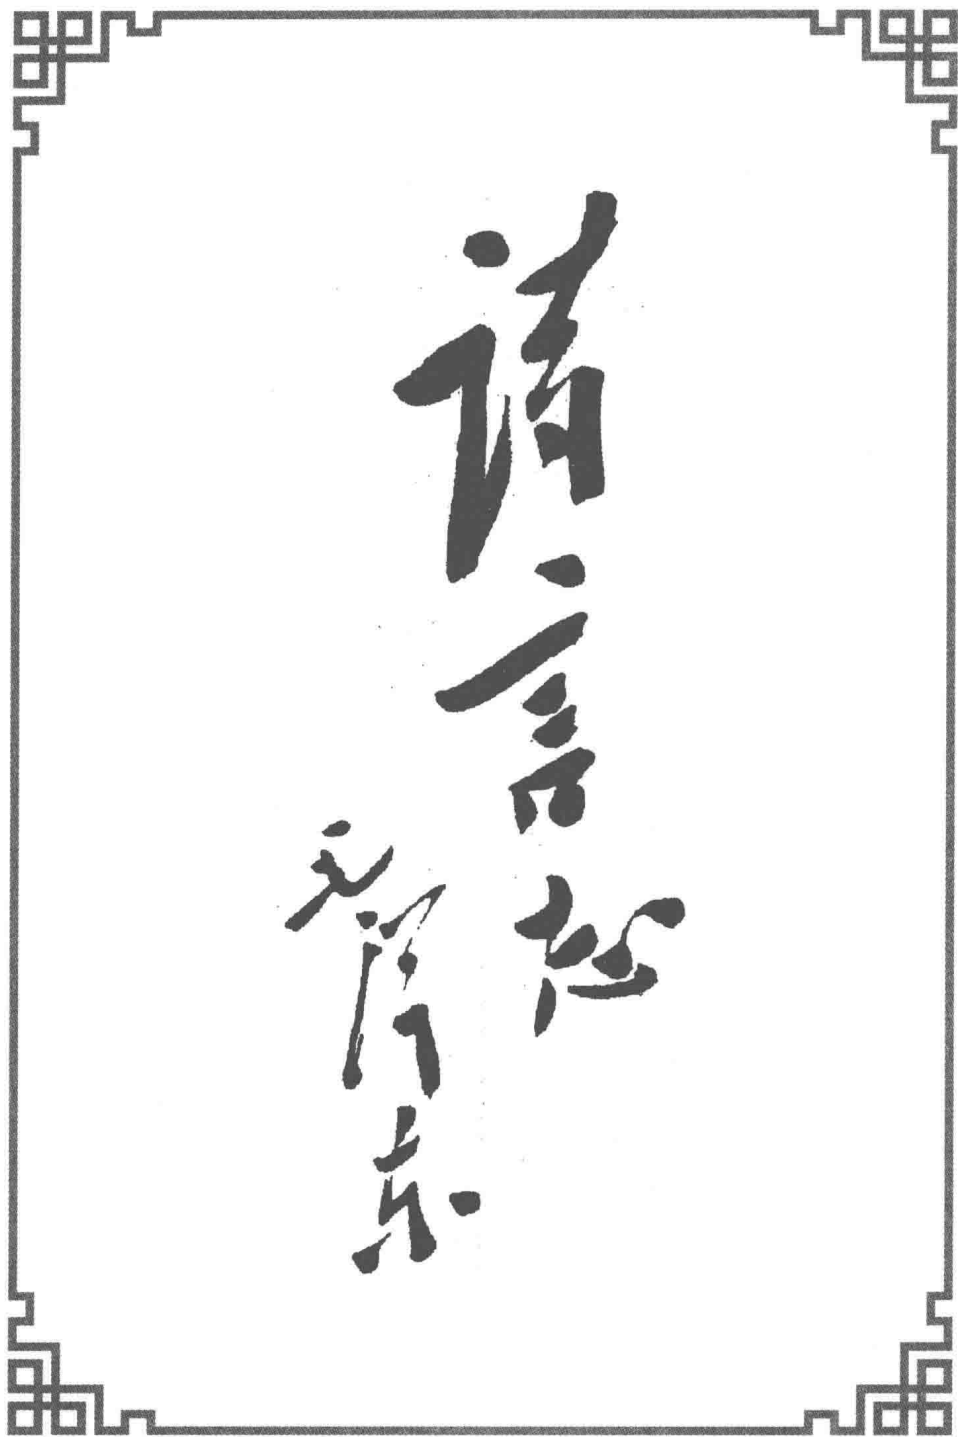 诗言志
毛泽东